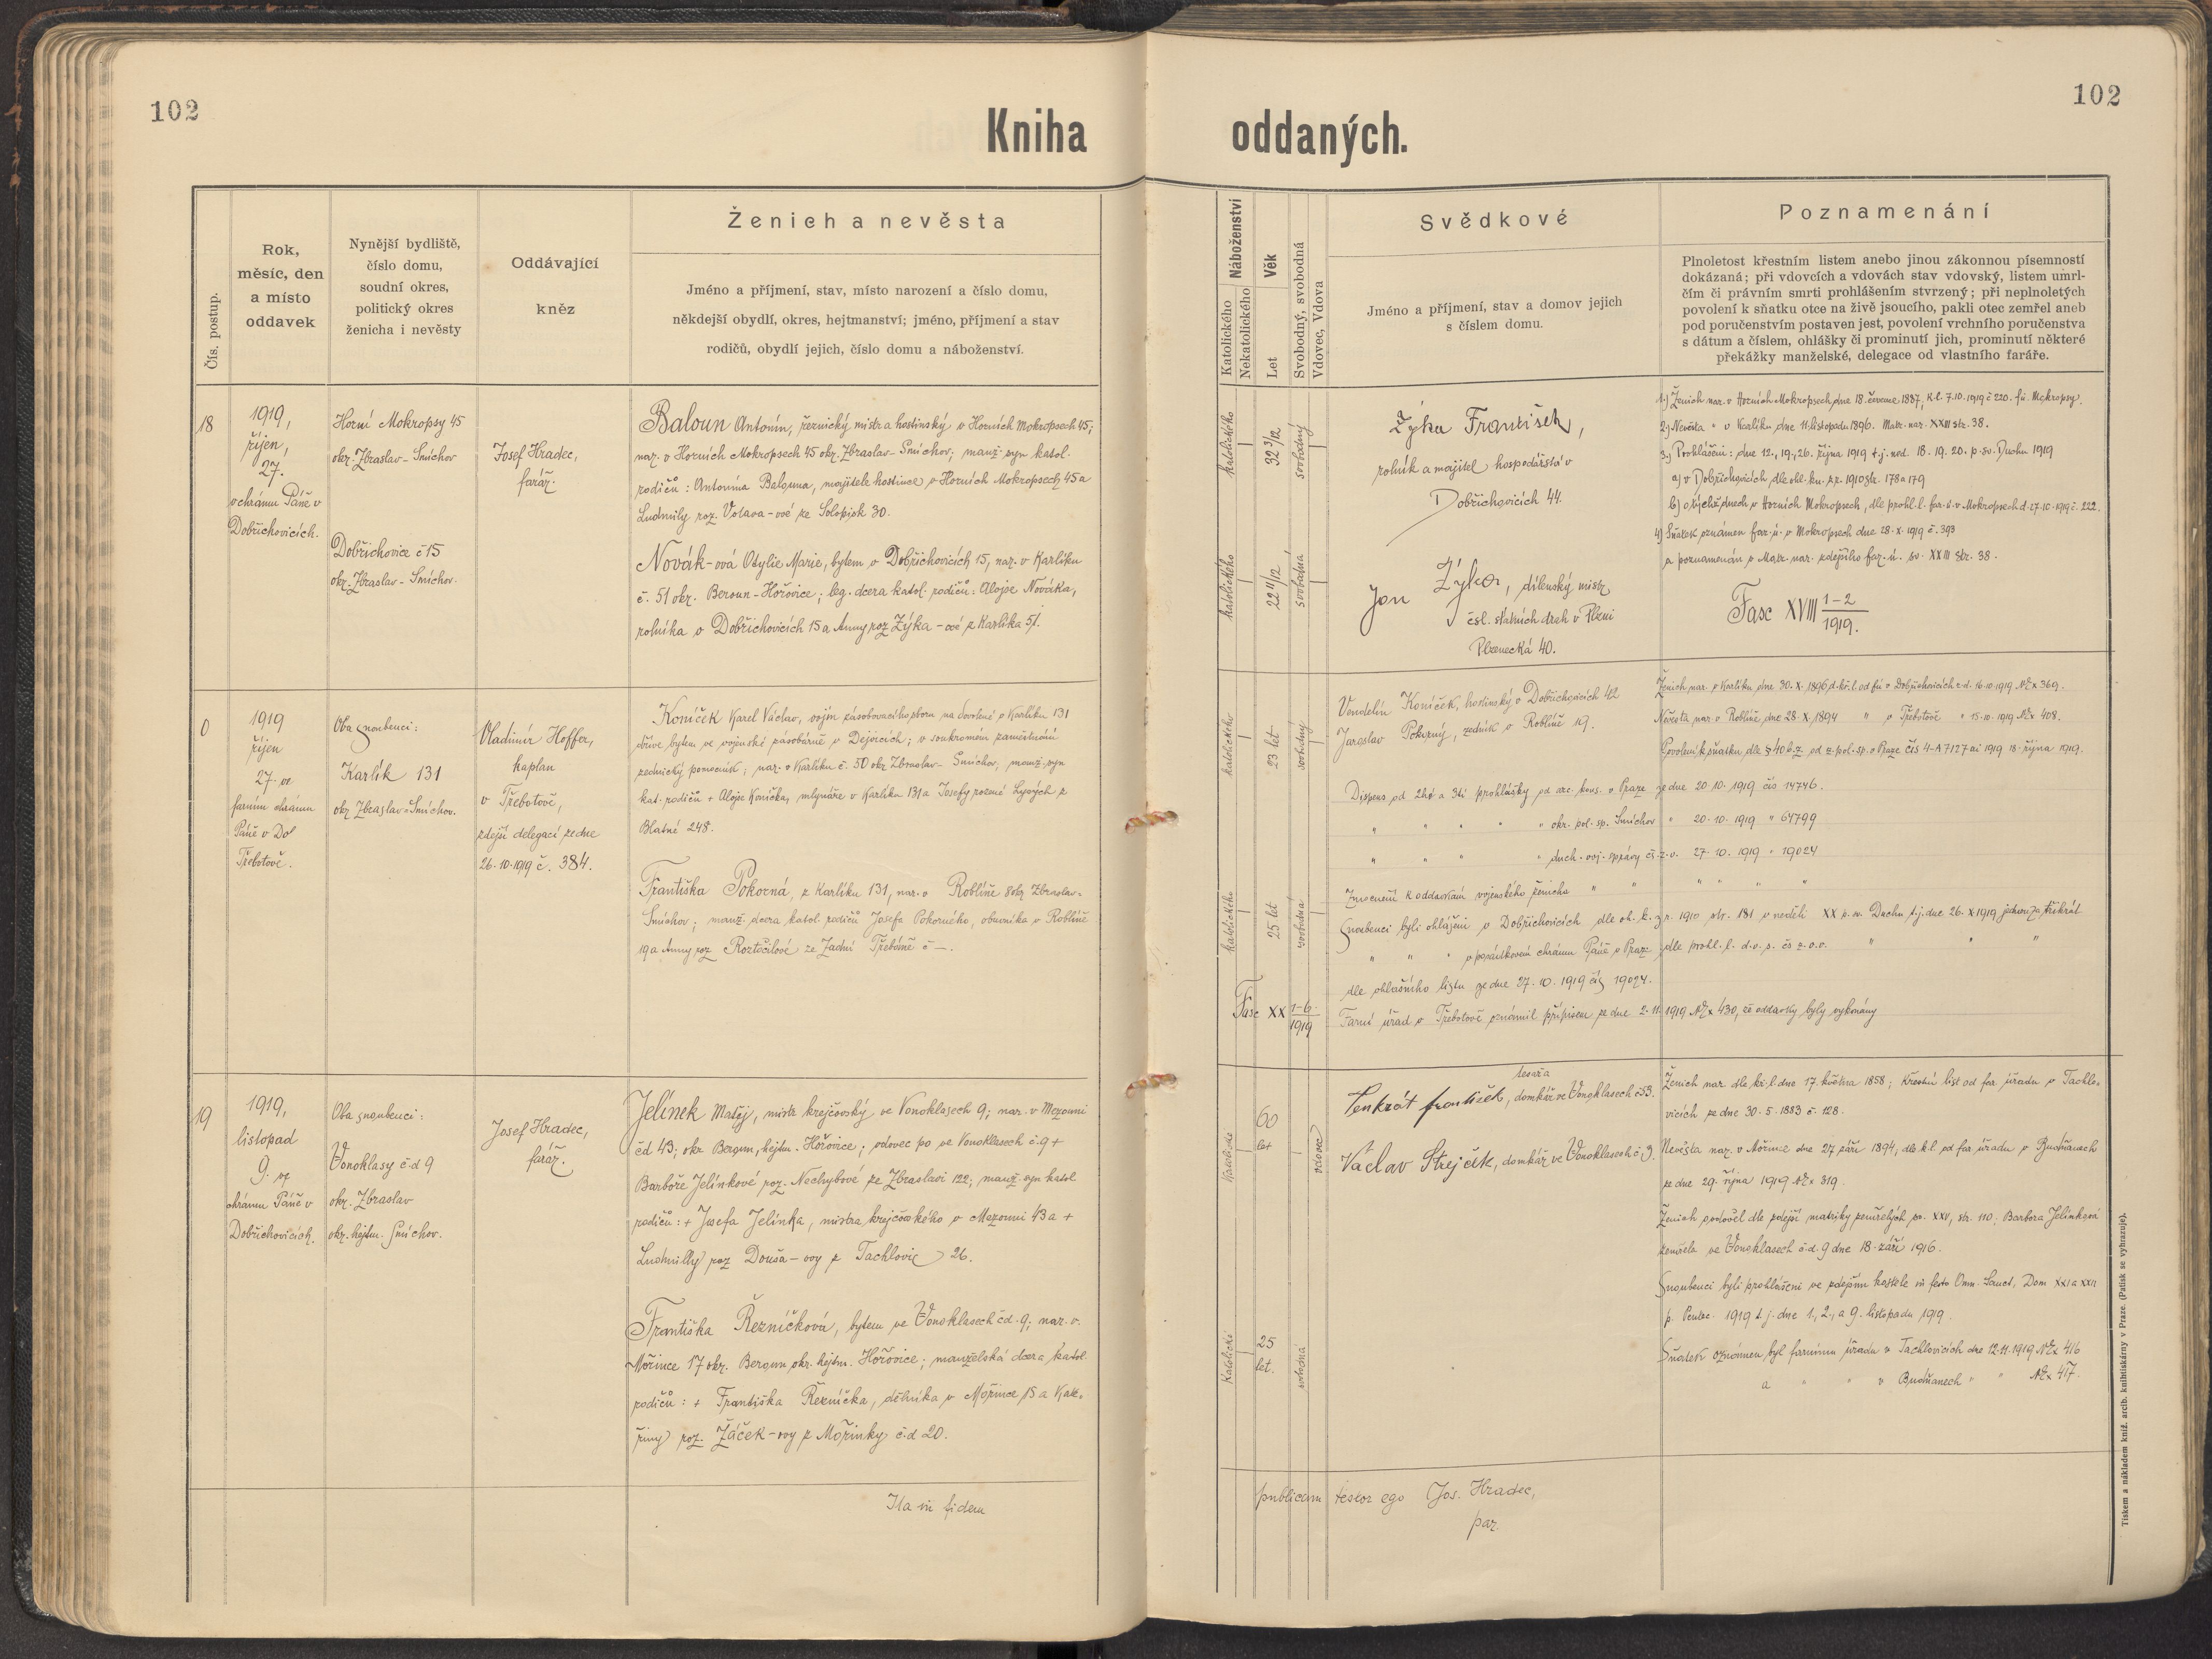 102
102
Kniha
oddaných.
Čís. postup.
Rok,
měsíc, den
a místo
oddavek
Nynější bydliště,
číslo domu,
soudní okres,
politický okres
ženicha i nevěsty
Oddávající
kněz
Ženich a nevěsta
Jméno a příjmení, stav, místo narození a číslo domu,
někdejší obydlí, okres, hejtmanství; jméno, příjmení a stav
rodičů, obydlí jejich, číslo domu a náboženství.
Náboženství
Katolického
Nekatolického
Věk
Let
Svobodný, svobodná
Vdovec, Vdova
Svědkové
Jméno a příjmení, stav a domov jejich
s číslem domu.
Poznamenání
Plnoletost křestním listem anebo jinou zákonnou písemností
dokázaná; při vdovcích a vdovách stav vdovský, listem úmrl-
čím či právním smrti prohlášením stvrzený; při neplnoletých
povolení k sňatku otce na živě jsoucího, pakli otec zemřel aneb
pod poručenstvím postaven jest, povolení vrchního poručenstva
s dátum a číslem, ohlášky či prominutí jich, prominutí některé
překážky manželské, delegace od vlastního faráře.
18
1919,
říjen,
27.
v chrámu Páně v
Dobřichovicích.
Horní Mokropsy 45
okr. Zbraslav - Smíchov
Dobřichovice č 15
okr. Zbraslav - Smíchov.
Josef Hradec,
farář.
Baloun Antonín, řeznický mistr a hostinský v Horních Mokropsech 45;
nar. v Horních Mokropsech 45 okr. Zbraslav - Smíchov; manž. syn katol.
rodičů: Antonína Balouna, majitele hostince v Horních Mokropsech 45 a
Ludmily roz. Votava - ové ze Solopisk 30.
Novák - ová Otylie Marie, bytem v Dobřichovicích 15, nar. v Karlíku
č. 51 okr. Beroun - Hořovice; leg. dcera katol. rodičů: Alojse Nováka,
rolníka v Dobřichovicích 15 a Anny roz Zýka - ové z Karlíka 51.
katolického
32 3/12
svobodný
katolického
22 11/12
svobodná
Zýka František,
rolník a majitel hospodářství v
Dobřichovicích 44.
Jan Zýka, dílenský mistr
čsl. státních drah v Plzni
Plzenecká 40.
1.) Ženich nar. v Horních Mokropsech dne 18. července 1887, k.l. 7.10.1919 č 220. fú. Mokropsy.
2.) Nevěsta " v Karlíku dne 11. listopadu 1896. Matr. nar. XXIII str. 38.
3.) Prohlášeni: dne 12., 19., 26. října 1919 t.j. ned. 18. 19. 20. p. sv. Duchu 1919
a) v Dobřichovicích dle ohl. kn. z r. 1910 str. 178 a 179
b) v týchž dnech v Horních Mokropsech, dle prohl. l. far. ú. v Mokropsech d. 27.10.1919 č. 222.
4) Sňatek oznámen far. ú. v Mokropsech dne 28. X. 1919 č. 393
a poznamenán v Matr. nar. zdejšího far. ú. sv. XXIII str. 38.
Fasc XVIII 1-2
1919.
0
1919
říjen
27. ve
farním chrámu
Páně v Dol
Třebotově.
Oba snoubenci:
Karlík 131
okr Zbraslav - Smíchov.
Vladimír Hoffer,
kaplan
v Třebotově,
zdejší delegací ze dne
26.10.1919 č. 384.
Koníček Karel Václav, vojín zásobovacího sboru na dovolené v Karlíku 131
dříve bytem ve vojenské zásobárně v Dejvicích; v soukromém zaměstnání
zednický pomocník; nar. v Karlíku č. 50 okr Zbraslav - Smíchov, manž. syn
kat. rodičů + Alojse Koníčka, mlynáře v Karlíku 131 a Josefy rozené Lysých z
Blatné 248.
Františka Pokorná, z Karlíku 131, nar. v Roblíně 8 okr Zbraslav-
Smíchov; manž. dcera katol. rodičů Josefa Pokorného, obuvníka v Roblíně
19 a Anny roz Roztočilové ze Zadní Třebáně č —.
katolického
23 let
svobodný
katolického
25 let
svobodná
Fasc XX 1-6
1919
Vendelín Koníček, hostinský v Dobřichovicích 42
Jaroslav Pokorný, zedník v Roblíně 19.
Ženich nar. v Karlíku dne 30. X. 1896 d. kř. l. od fú v Dobřichovicích z d. 16.10.1919 № ex 369.
Nevěsta nar. v Roblíně dne 28. X. 1894 " v Třebotově " 15.10.1919 № ex 408.
Povolení k sňatku dle § 40 b. z od z. pol. sp. v Praze čís 4-A 7127 ai 1919 18. října 1919.
Dispens od 2hé a 3tí prohlášky od arc. kons. v Praze ze dne 20.10.1919 čís 14746.
" " " " " okr. pol. sp. Smíchov " 20.10.1919 " 64799
" " " " duch. voj. správy čs. z. v. 27.10.1919 " 19024
Zmocnění k oddavkám vojenského ženicha " " " " " "
Snoubenci byli ohlášeni v Dobřichovicích dle oh. k. z r. 1910 str. 181 v neděli XX p. sv. Duchu t.j. dne 26. X 1919 jednou za třikrát
" " " v posádkovém chrámu Páně v Praze dle prohl. l. d. v. s. čs z. v. " " "
dle ohlašního listu ze dne 27.10.1919 čís 19024.
Farní úřad v Třebotově oznámil přípisem ze dne 2.11.1919 № ex 430, že oddavky byly vykonány
19
1919,
listopad
9. ve
chrámu Páně v
Dobřichovicích.
Oba snoubenci:
Vonoklasy č.d 9
okr. Zbraslav
okr. hejtm. Smíchov.
Josef Hradec,
farář.
Jelínek Matěj, mistr krejčovský ve Vonoklasech 9; nar. v Mezouni
čd 43; okr Beroun, hejtm. Hořovice; vdovec po ve Vonoklasech č. 9 +
Barboře Jelínkové roz. Nechybové ze Zbraslavi 122; manž. syn katol
rodičů: + Josefa Jelínka, mistra krejčovského v Mezouni 43 a +
Ludmilly roz Douša - ovy z Tachlovic 26.
Františka Řezníčková, bytem ve Vonoklasech čd. 9; nar. v.
Mořince 17 okr. Beroun, okr. hejtm. Hořovice; manželská dcera katol.
rodičů: + Františka Řezníčka, dělníka v Mořince 15 a Kate-
řiny roz. Žáček - ovy z Mořinky č.d 20.
Katolické
60
let
vdovec
Katolické
25
let.
svobodná
tesaře
Penkrát František, domkář ve Vonoklasech č 53.
Václav Strejček, domkář ve Vonoklasech č 3.
Ženich nar. dle kř. l. dne 17. května 1858; křestní list od far. úřadu v Tachlo-
vicích ze dne 30. 5. 1883 č. 128.
Nevěsta nar. v Mořince dne 27 září 1894, dle k.l. od far. úřadu v Budňanech
ze dne 29. října 1919 № ex 319.
Ženich ovdověl dle zdejší matriky zemřelých sv. XXV, str. 110. Barbora Jelínková
zemřela ve Vonoklasech č.d. 9 dne 18. září 1916.
Snoubenci byli prohlášeni ve zdejším kostele in festo Omn. Sanct, Dom XXI a XXII
p. Pentec. 1919 t. j. dne 1., 2., a 9. listopadu 1919.
Sňatek oznámen byl farnímu úřadu v Tachlovicích dne 12.11.1919 № ex 416
a " " v Budňanech " " № ex 417.
Ita in fidem
publicam testor ego Jos. Hradec,
par.
Tiskem a nákladem kníž. arcib. knihtiskárny v Praze. (Patisk se vyhrazuje).